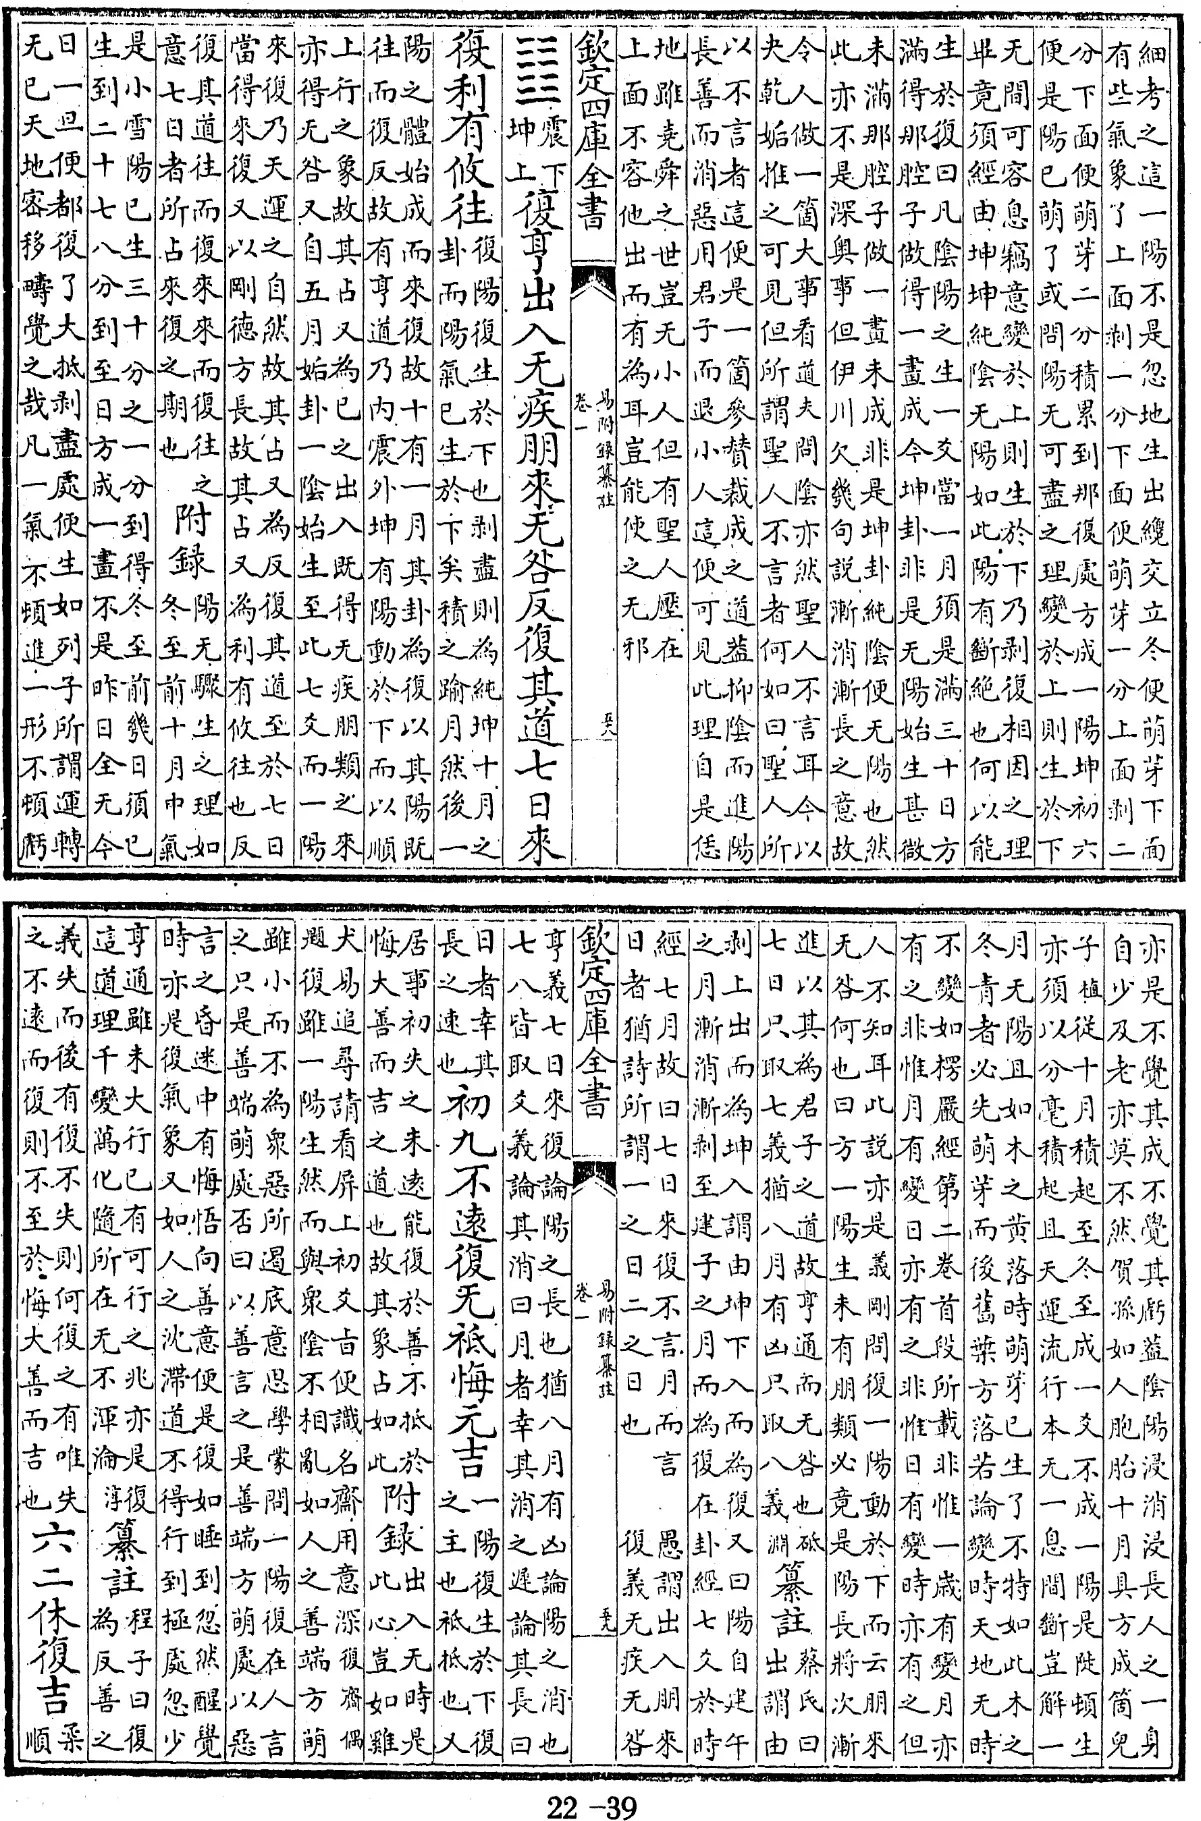 細考之這一陽不是忽地生出纔交立冬便萌芽下面
有些氣象了上面剥一分下面便萌芽一分上面剥二
分下面便萌芽二分積累到那復處方成一陽坤初六
便是陽已萌了或問陽无可盡之理變於上則生於下
无間可容息竊意變於上則生於下乃剥復相因之理
畢竟須經由坤坤純隂无陽如此陽有斷絶也何以能
生於復曰凡隂陽之生一爻當一月須是滿三十日方
滿得那腔子做得一畫成今坤卦非是无陽始生甚微
未滿那腔子做一畫未成非是坤卦純隂便无陽也然
此亦不是深奥事但伊川欠幾句説漸消漸長之意故
令人做一箇大事看道夫問隂亦然聖人不言耳今以
夬乾姤推之可見但所謂聖人不言者何如曰聖人所
以不言者這便是一箇參贊裁成之道葢抑隂而進陽
長善而消惡用君子而退小人這便可見此理自是恁
地雖堯舜之世豈无小人但有聖人壓在
上面不容他出而有為耳豈能使之无邪
欽定四庫全書
易附錄纂註
卷一
䷗震下坤上復亨出入无疾朋來无咎反復其道七日來
復利有攸往
復陽復生於下也剥盡則為純坤十月之
卦而陽氣已生於下矣積之踰月然後一
陽之體始成而來復故十有一月其卦為復以其陽既
往而復反故有亨道乃内震外坤有陽動於下而以順
上行之象故其占又為已之出入既得无疾朋類之來
亦得无咎又自五月姤卦一隂始生至此七爻而一陽
來復乃天運之自然故其占又為反復其道至於七日
當得來復又以剛德方長故其占又為利有攸往也反
復其道往而復來來而復往之
意七日者所占來復之期也
附錄
陽无驟生之理如
冬至前十月中氣
是小雪陽已生三十分之一分到得冬至前幾日須已
生到二十七八分到至日方成一畫不是昨日全无今
日一旦便都復了大抵剥盡處便生如列子所謂運轉
无已天地密移疇覺之哉凡一氣不頓進一形不頓虧
亦是不覺其成不覺其虧葢隂陽浸消浸長人之一身
自少及老亦莫不然賀孫如人胞胎十月具方成箇兒
子植從十月積起至冬至成一爻不成一陽是陡頓生
亦須以分毫積起且天運流行本无一息間斷豈解一
月无陽且如木之黄落時萌芽已生了不特如此木之
冬青者必先萌芽而後舊葉方落若論變時天地无時
不變如楞嚴經第二卷首段所載非惟一歲有變月亦
有之非惟月有變日亦有之非惟日有變時亦有之但
人不知耳此説亦是義剛問復一陽動於下而云朋來
无咎何也曰方一陽生未有朋類必竟是陽長將次漸
進以其為君子之道故亨通而无咎也砥
七日只取七義猶八月有凶只取八義淵
纂註
蔡氏曰
出謂由
剥上出而為坤入謂由坤下入而為復又曰陽自建午
之月漸消漸剥至建子之月而為復在卦經七爻於時
經七月故曰七日來復不言月而言
日者猶詩所謂一之日二之日也
愚謂出入朋來
復義无疾无咎
欽定四庫全書
易附錄纂註
卷一
亨義七日來復論陽之長也猶八月有凶論陽之消也
七八皆取爻義論其消曰月者幸其消之遲論其長曰
日者幸其
長之速也
初九不遠復无祗悔元吉
一陽復生於下復
之主也祗抵也又
居事初失之未遠能復於善不抵於
悔大善而吉之道也故其象占如此
附録
出入无時是
此心豈如雞
犬易追尋請看屏上初爻㫖便識名齋用意深復齋偶
題復雖一陽生然而與衆隂不相亂如人之善端方萌
雖小而不為衆惡所遏底意思學蒙問一陽復在人言
之只是善端萌處否曰以善言之是善端方萌處以惡
言之昏迷中有悔悟向善意便是復如睡到忽然醒覺
時亦是復氣象又如人之沈滯道不得行到極處忽少
亨通雖未大行已有可行之兆亦是復
這道理千變萬化隨所在无不渾淪淳
纂註
程子曰復
為反善之
義失而後有復不失則何復之有唯失
之不遠而復則不至於悔大善而吉也
六二休復吉
柔
順
22-39